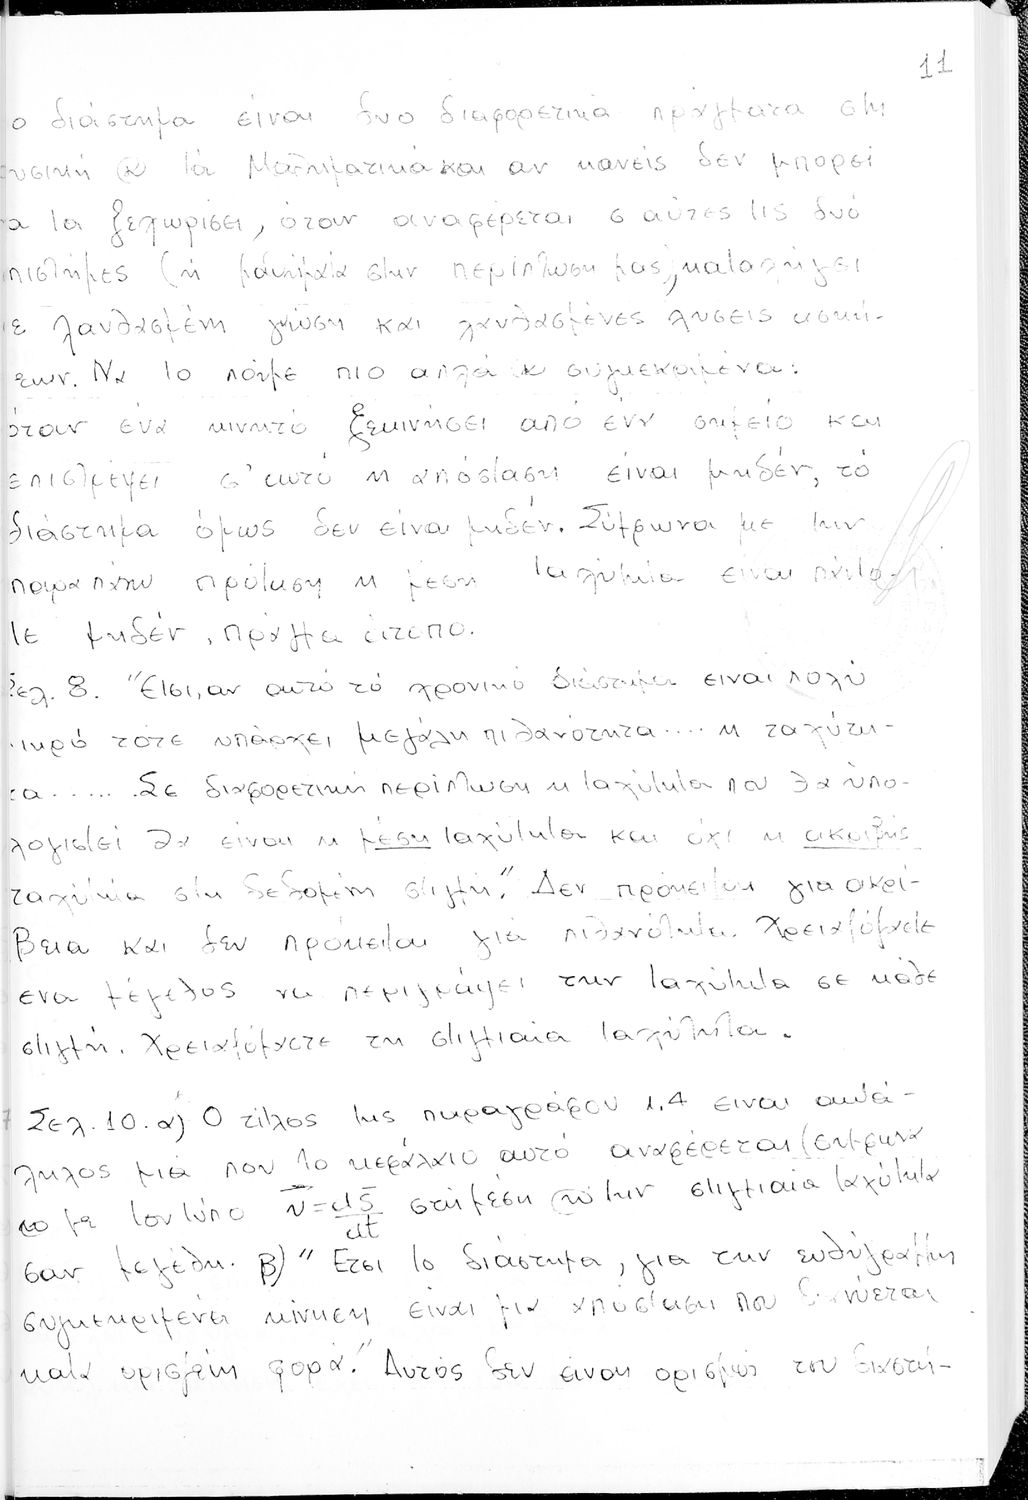 11
ο διάστημα είναι δυο διαφορετικά πράγματα στη
υσική & τα Μαθηματικά και αν κανείς δεν μπορεί
α τα ξεχωρίσει, όταν αναφέρεται σ αυτές τις δυό
πιστήμες (ή μάθημα στην περίπτωση μας), καταλήγει
ε λανθασμένη γνώση και λανθασμένες λύσεις ασκή-
εων. Να το πούμε πιο απλά & συγκεκριμένα:
όταν ένα κινητό ξεκινήσει από ένα σημείο και
επιστρέψει σ' αυτό η απόσταση είναι μηδέν, τό
διάστημα όμως δεν είναι μηδέν. Σύμφωνα με την
παραπάνω πρόταση η μέση ταχύτητα είναι πάντο-
τε μηδέν, πράγμα άτοπο.
Σελ. 8. "Ετσι, αν αυτό τό χρονικό διάστημα ειναι πολύ
ικρό τότε υπάρχει μεγάλη πιθανότητα.... η ταχύτη-
τα...... Σε διαφορετική περίπτωση η ταχύτητα που θα υπο-
λογιστεί θα είναι η μέση ταχύτητα και όχι η ακριβής
ταχύτητα στη δεδομένη στιγμή." Δεν πρόκειται για ακρί-
βεια και δεν πρόκειται γιά πιθανότητα. Χρειαζόμαστε
ενα μέγεθος να περιγράψει την ταχύτητα σε κάθε
στιγμή. Χρειαζόμαστε τη στιγμιαία ταχύτητα.
Σελ. 10. α) Ο τίτλος της παραγράφου 1.4 ειναι ακατά-
ληλος μιά που το κεφάλαιο αυτό αναφέρεται (σύμφωνα
με τον τύπο v⃗ = ds⃗/dt στη μέση & την στιγμιαία ταχύτητα
σαν μεγέθη. β) "Ετσι το διάστημα, για την ευθύγραμμη
συγκεκριμένα κίνηση είναι μια απόσταση που διανύεται
κατα ορισμένη φορά." Αυτός δεν είναι ορισμός του διαστή-